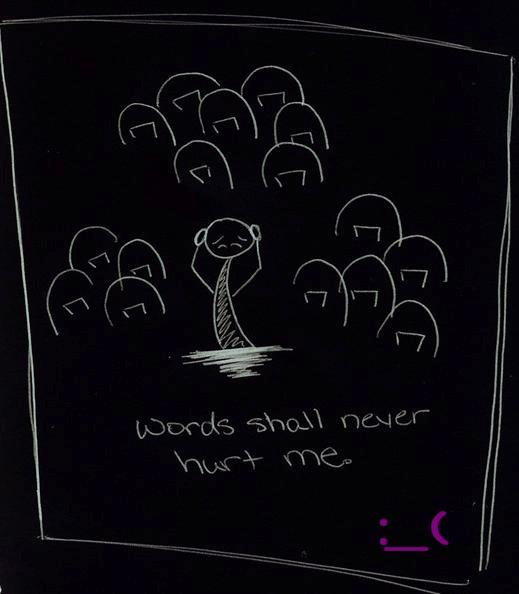 words shall never
hurt me.
:_(